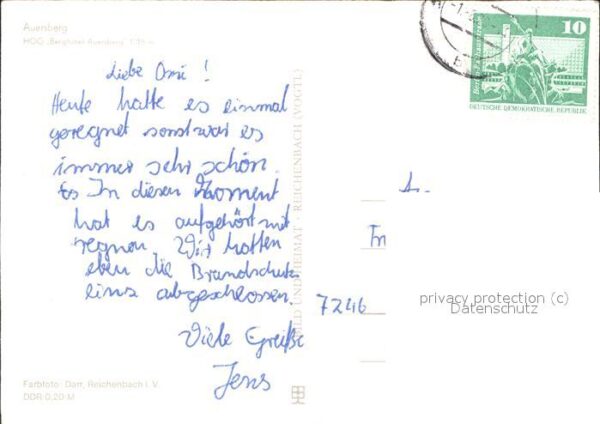 Auersberg
HOG „Berghotel Auersberg"
Liebe Omi!
Heute hatte es einmal
geregnet sonst war es
immer sehr schön.
Es In diesen Moment
hat es aufgehört mit
regnen. Wir hatten
eben die Brandschutz
eins abgeschlossen.
Viele Grüße
Jens
Farbfoto: Darr, Reichenbach i. V.
DDR 0,20 M
BILD UND HEIMAT · REICHENBACH (VOGTL)
10
DEUTSCHE DEMOKRATISCHE REPUBLIK
7246
privacy protection (c)
Datenschutz